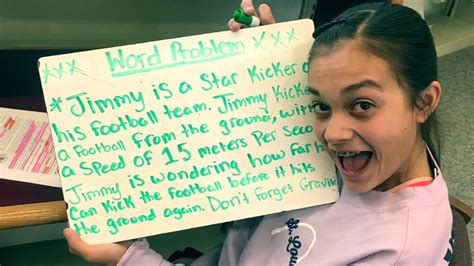 xxx Word Problem xxx
* Jimmy is a Star Kicker
his football team. Jimmy Kicke
a football from the ground, with
a speed of 15 meters Per Seco
Jimmy is wondering how far h
can kick the football before it hits
the ground again. Don't forget Gravi
St. Lou